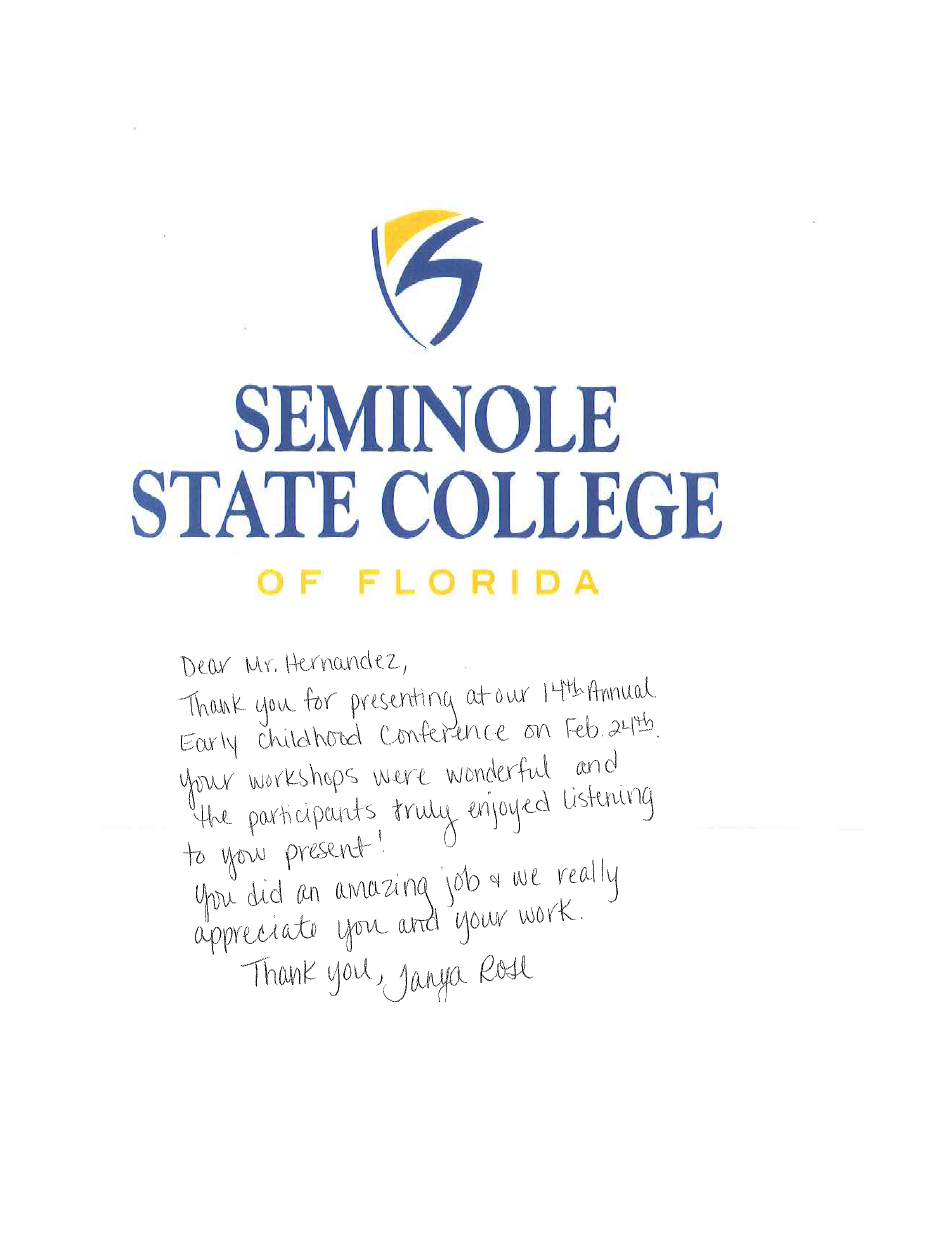 SEMINOLE
STATE COLLEGE
OF FLORIDA
Dear Mr. Hernandez,
Thank you for presenting at our 14th Annual
Early childhood Conference on Feb. 24th.
Your workshops were wonderful and
the participants truly enjoyed listening
to you present!
You did an amazing job & we really
appreciate you and your work.
Thank you, Tanya Rose